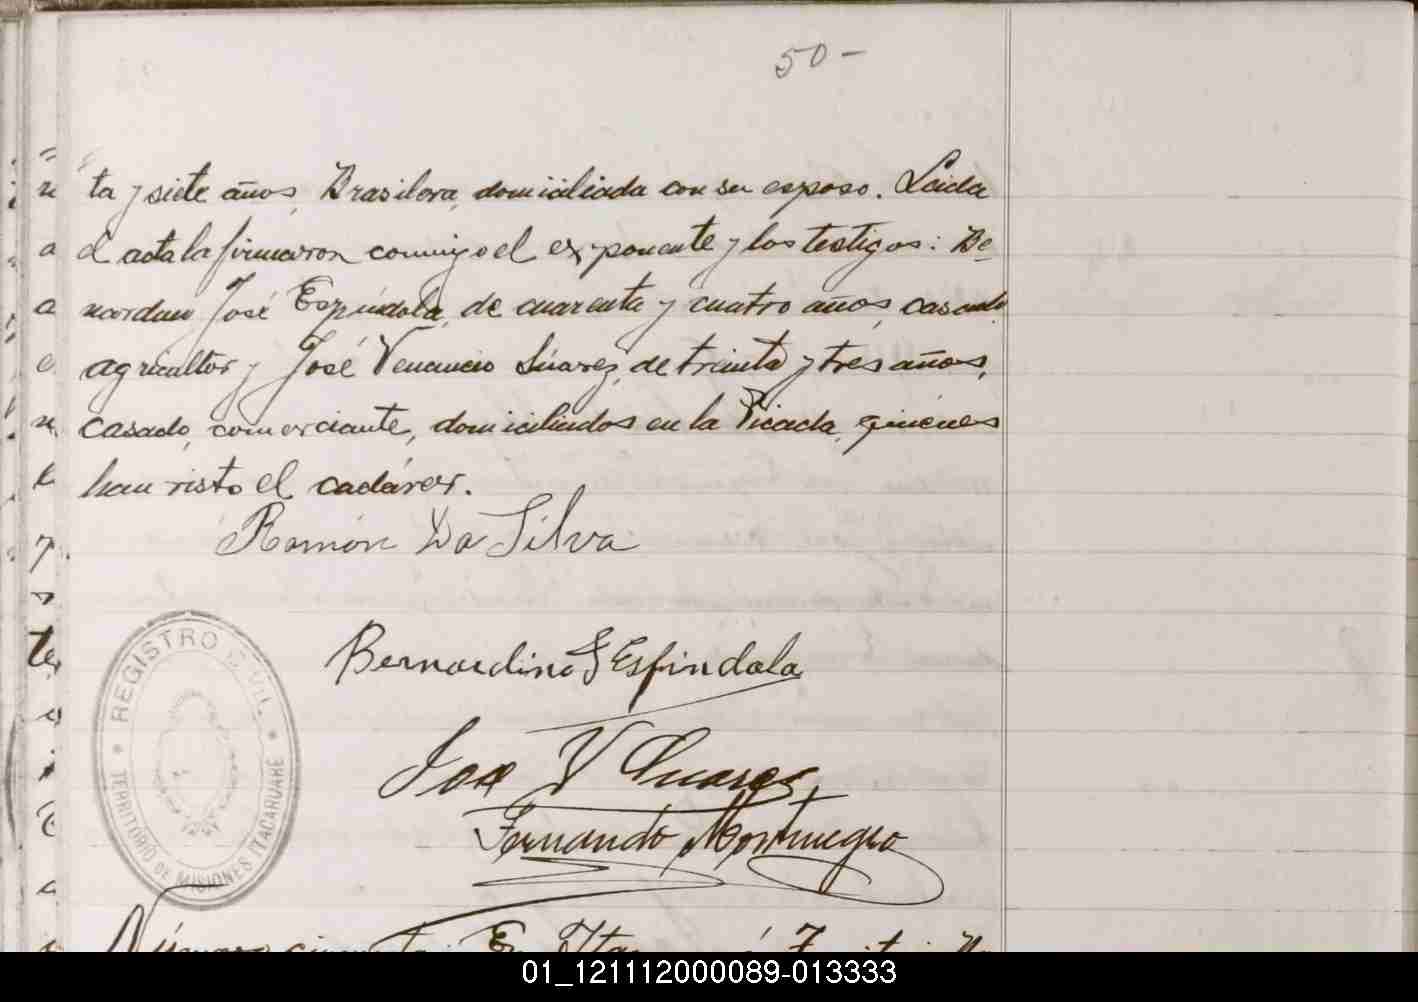 50-
ta y siete años, Brasilera, domiciliada con su esposo. Leida
el acta la firmaron conmigo el exponente y los testigos: Be-
nardino José Espíndola, de cuarenta y cuatro años, casado
agricultor y José Venancio Súarez, de treinta y tres años,
casado, comerciante, domiciliados en la Picada, quiénes
han visto el cadáver.
Ramón Da Silva
Bernardino J Espindola
REGISTRO CIVIL
TERRITORIO DE MISIONES ITACARUARÉ
Jose V Suarez
Fernando Montenegro
Número
01_121112000089-013333